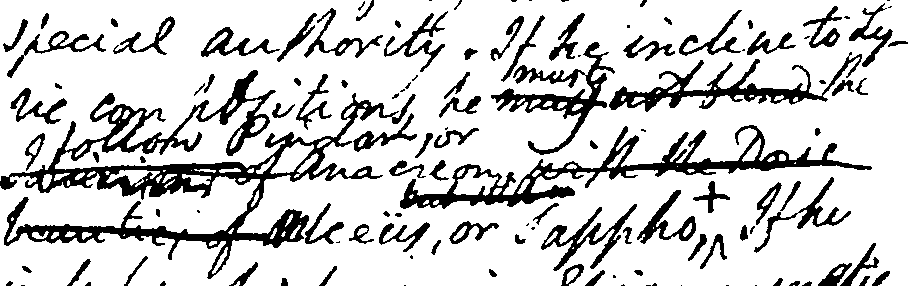 special authority. If he incline to Ly-
ric compositions, he must
may not blend the
follow Pindar, or
of Anacreon, with the Doric
beauties of Alceüs, or Sappho,+ If he